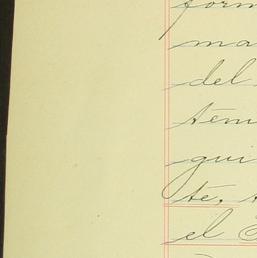 form
ma
del
tém
gui
te,
el